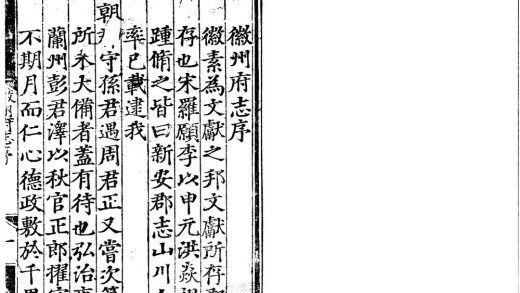 徽州府志序
徽素為文獻之邦文獻所存
存也宋羅願李以申元洪焱
踵脩之皆曰新安郡志山川
率已載逮我
朝 守孫君遇周君正又嘗次
所未大備者蓋有待也弘治
蘭州彭君澤以秋官正郎擢
不期月而仁心德政敷於千
府志序
一